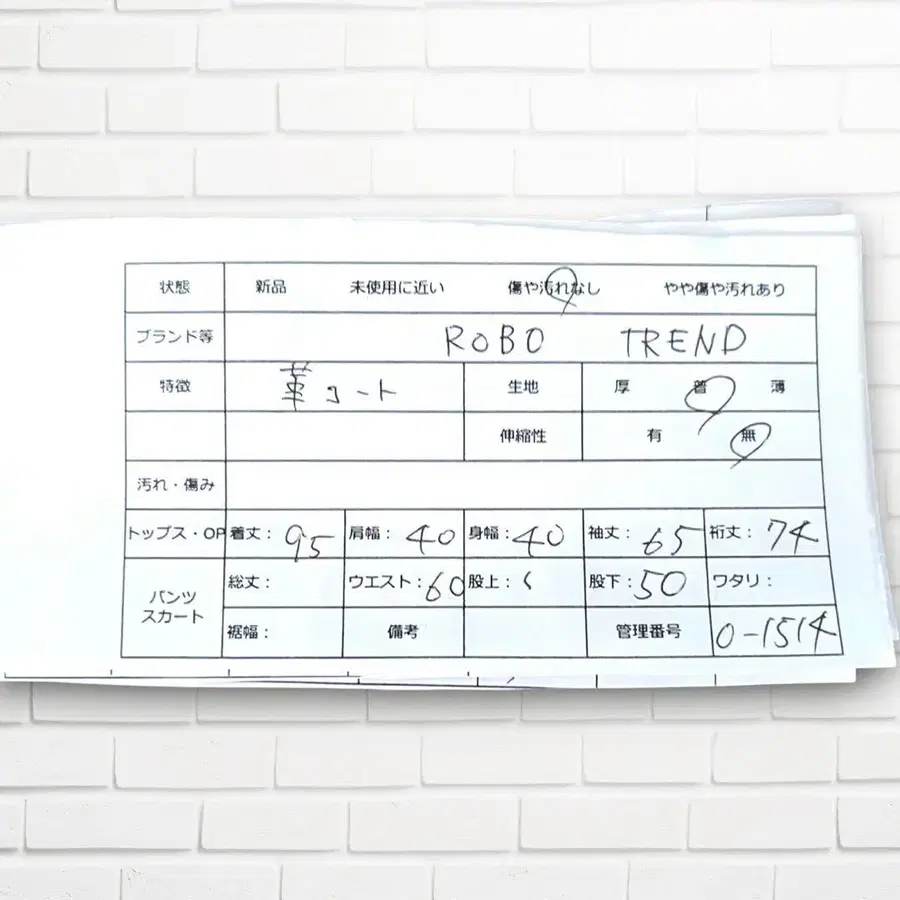 状態 新品 未使用に近い 傷や汚れなし やや傷や汚れあり
ブランド等 ROBO TREND
特徴 革コート 生地 厚 普 薄
伸縮性 有 無
汚れ・傷み
トップス・OP 着丈: 95 肩幅: 40 身幅: 40 袖丈: 65 裄丈: 74
パンツ
スカート
総丈: ウエスト: 60 股上: 股下: 50 ワタリ:
裾幅: 備考 管理番号 0-1514